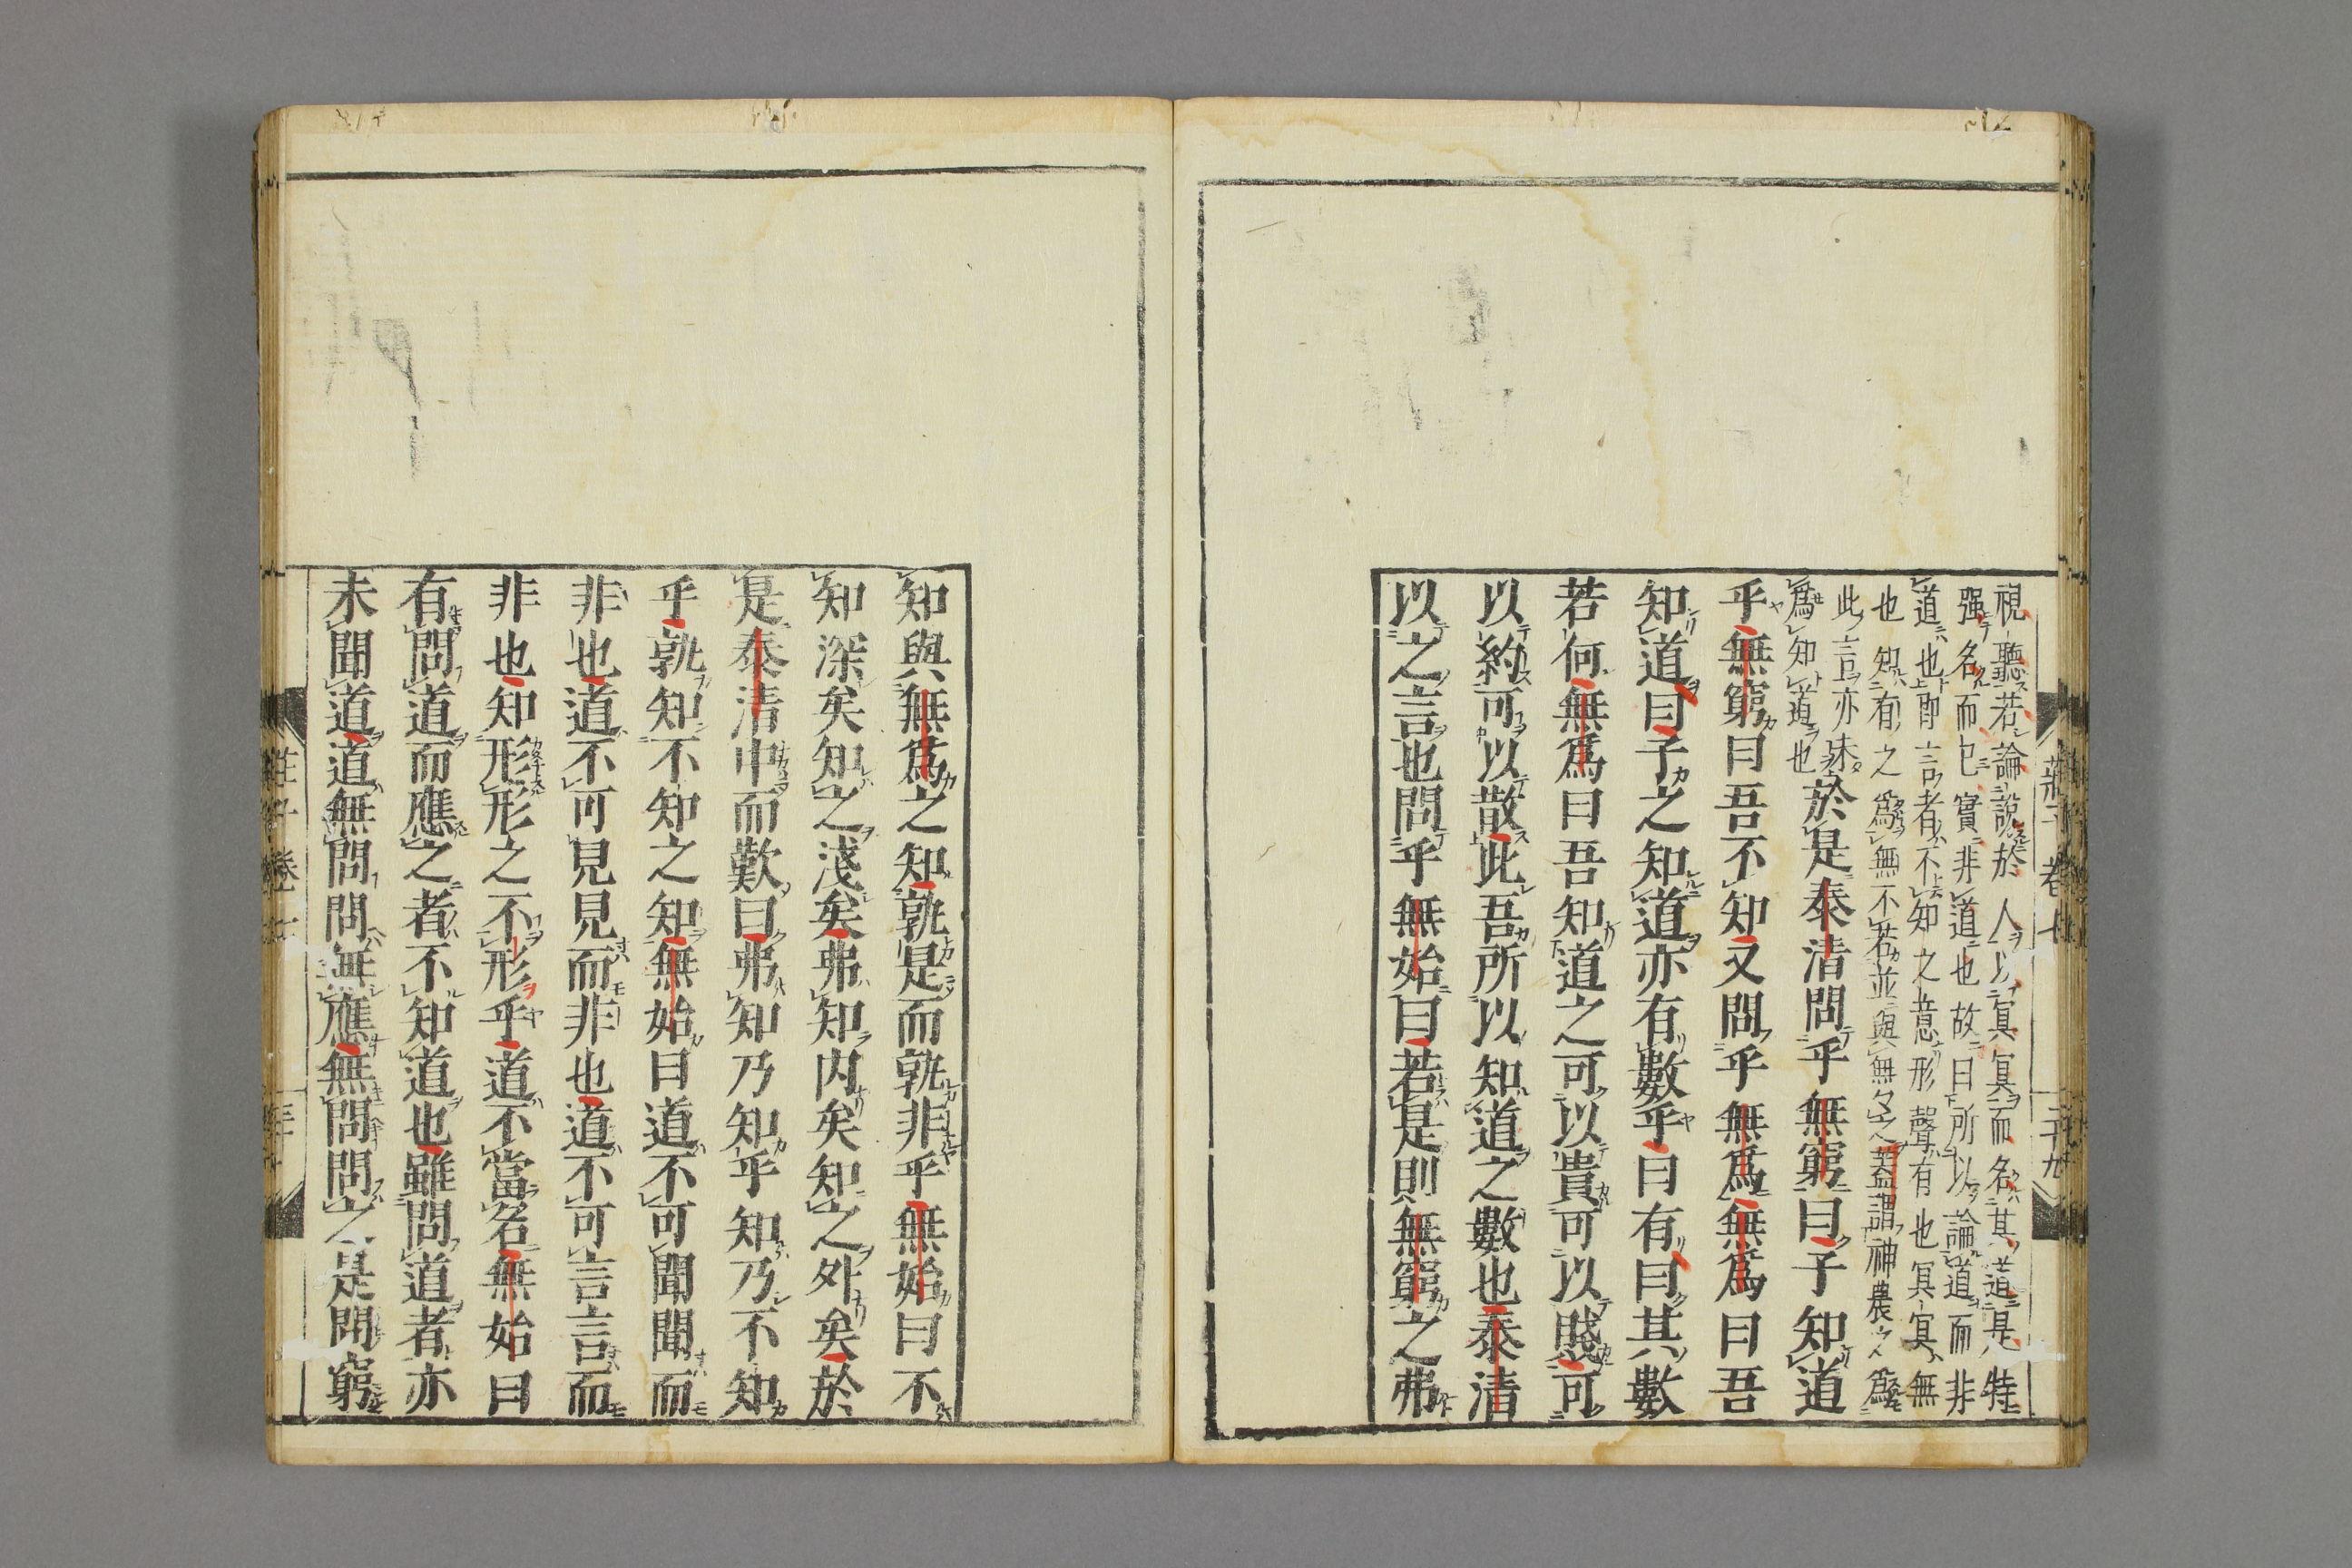 莊子 卷七 三十九
視聽若論說於人以冥冥而名其道是特
强名而已實非道也故曰所以論道而非
道也卽言者不知之意形聲有也冥冥無
也知有之爲無不若並與無名之蓋謂神農之爲
此言亦未
爲知道也於是泰清問乎無窮曰子知道
乎無窮曰吾不知又問乎無爲無爲曰吾
知道曰子之知道亦有數乎曰有曰其數
若何無爲曰吾知道之可以貴可以賤可
以約可以散此吾所以知道之數也泰清
以之言也問乎無始曰若是則無窮之弗
知與無爲之知孰是而孰非乎無始曰不
知深矣知之淺矣弗知內矣知之外矣於
是泰清中而歎曰弗知乃知乎知乃不知
乎孰知不知之知無始曰道不可聞聞而
非也道不可見見而非也道不可言言而
非也知形形之不形乎道不當名無始曰
有問道而應之者不知道也雖問道者亦
未聞道道無問問無應無問問之是問窮